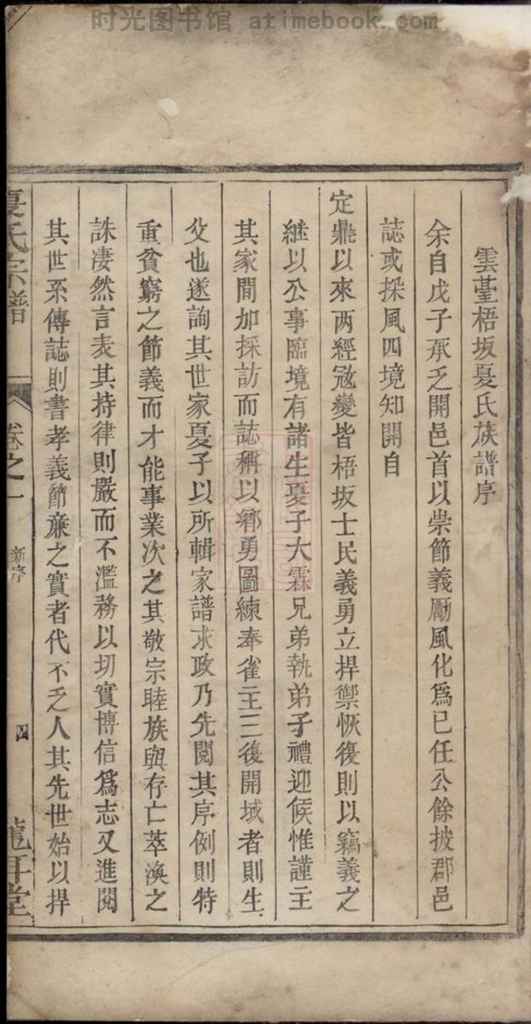 时光图书馆 atimebook.com
雲臺梧坂夏氏族譜序
余自戊子承乏開邑首以崇節義勵風化為已任公餘披郡邑
誌或採風四境知開自
定鼎以來两經冦變皆梧坂士民義勇立捍禦恢復則以竊義之
继以公事臨境有諸生夏子大霖兄弟執弟子禮迎候惟謹主
其家間加採訪而誌稱以鄉勇圖練奉雀主三復開城者則生
父也遂詢其世家夏子以所輯家譜求政乃先閱其序例則特
重貧窮之節義而才能事業次之其敬宗睦族與存亡萃渙之
誅凄然言表其持律則嚴而不濫務以切實博信為志又進閱
其世系傳誌則書孝義節亷之實者代不乏人其先世始以捍
夏氏宗譜 卷之一 序 四